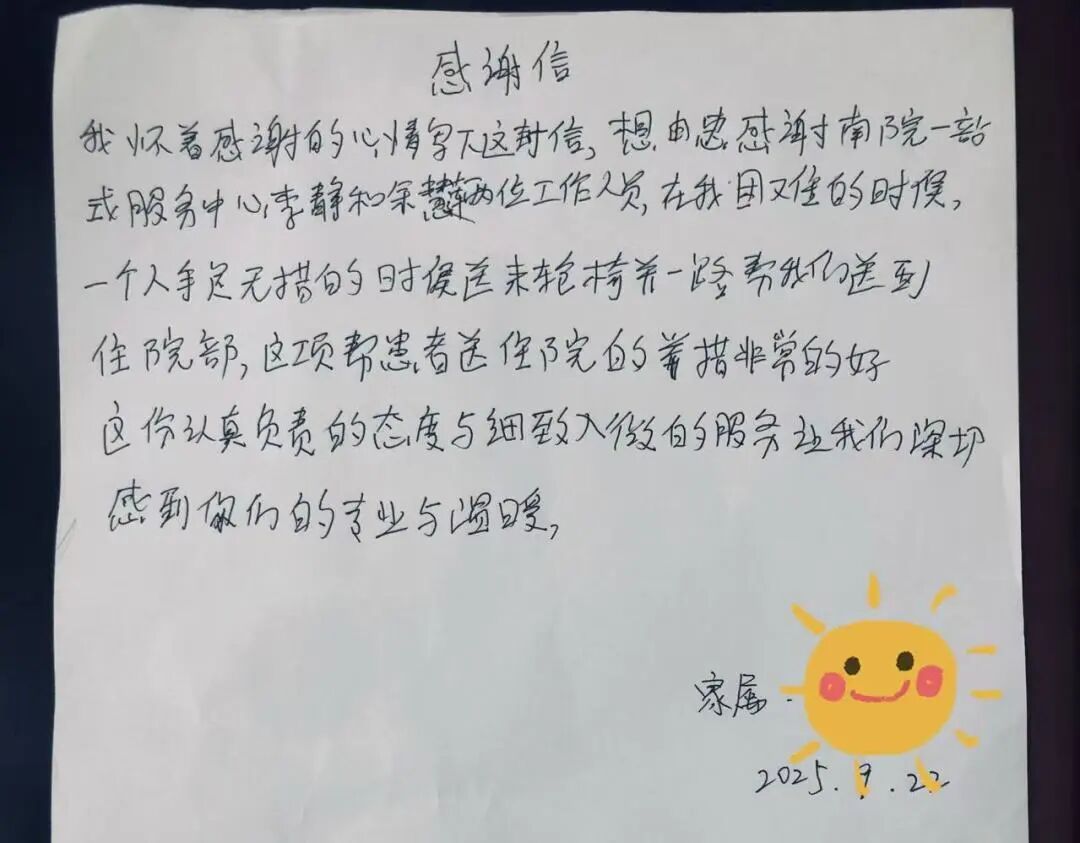 感谢信
我怀着感谢的心情写下这封信,想由忠感谢南院一站
式服务中心李静和余慧两位工作人员,在我困难的时候,
一个人手足无措的时候送来轮椅并一路帮我们送到
住院部,这项帮患者送住院的举措非常的好
这份认真负责的态度与细致入微的服务让我们深切
感到你们的专业与温暖,
家属.
2025.9.22